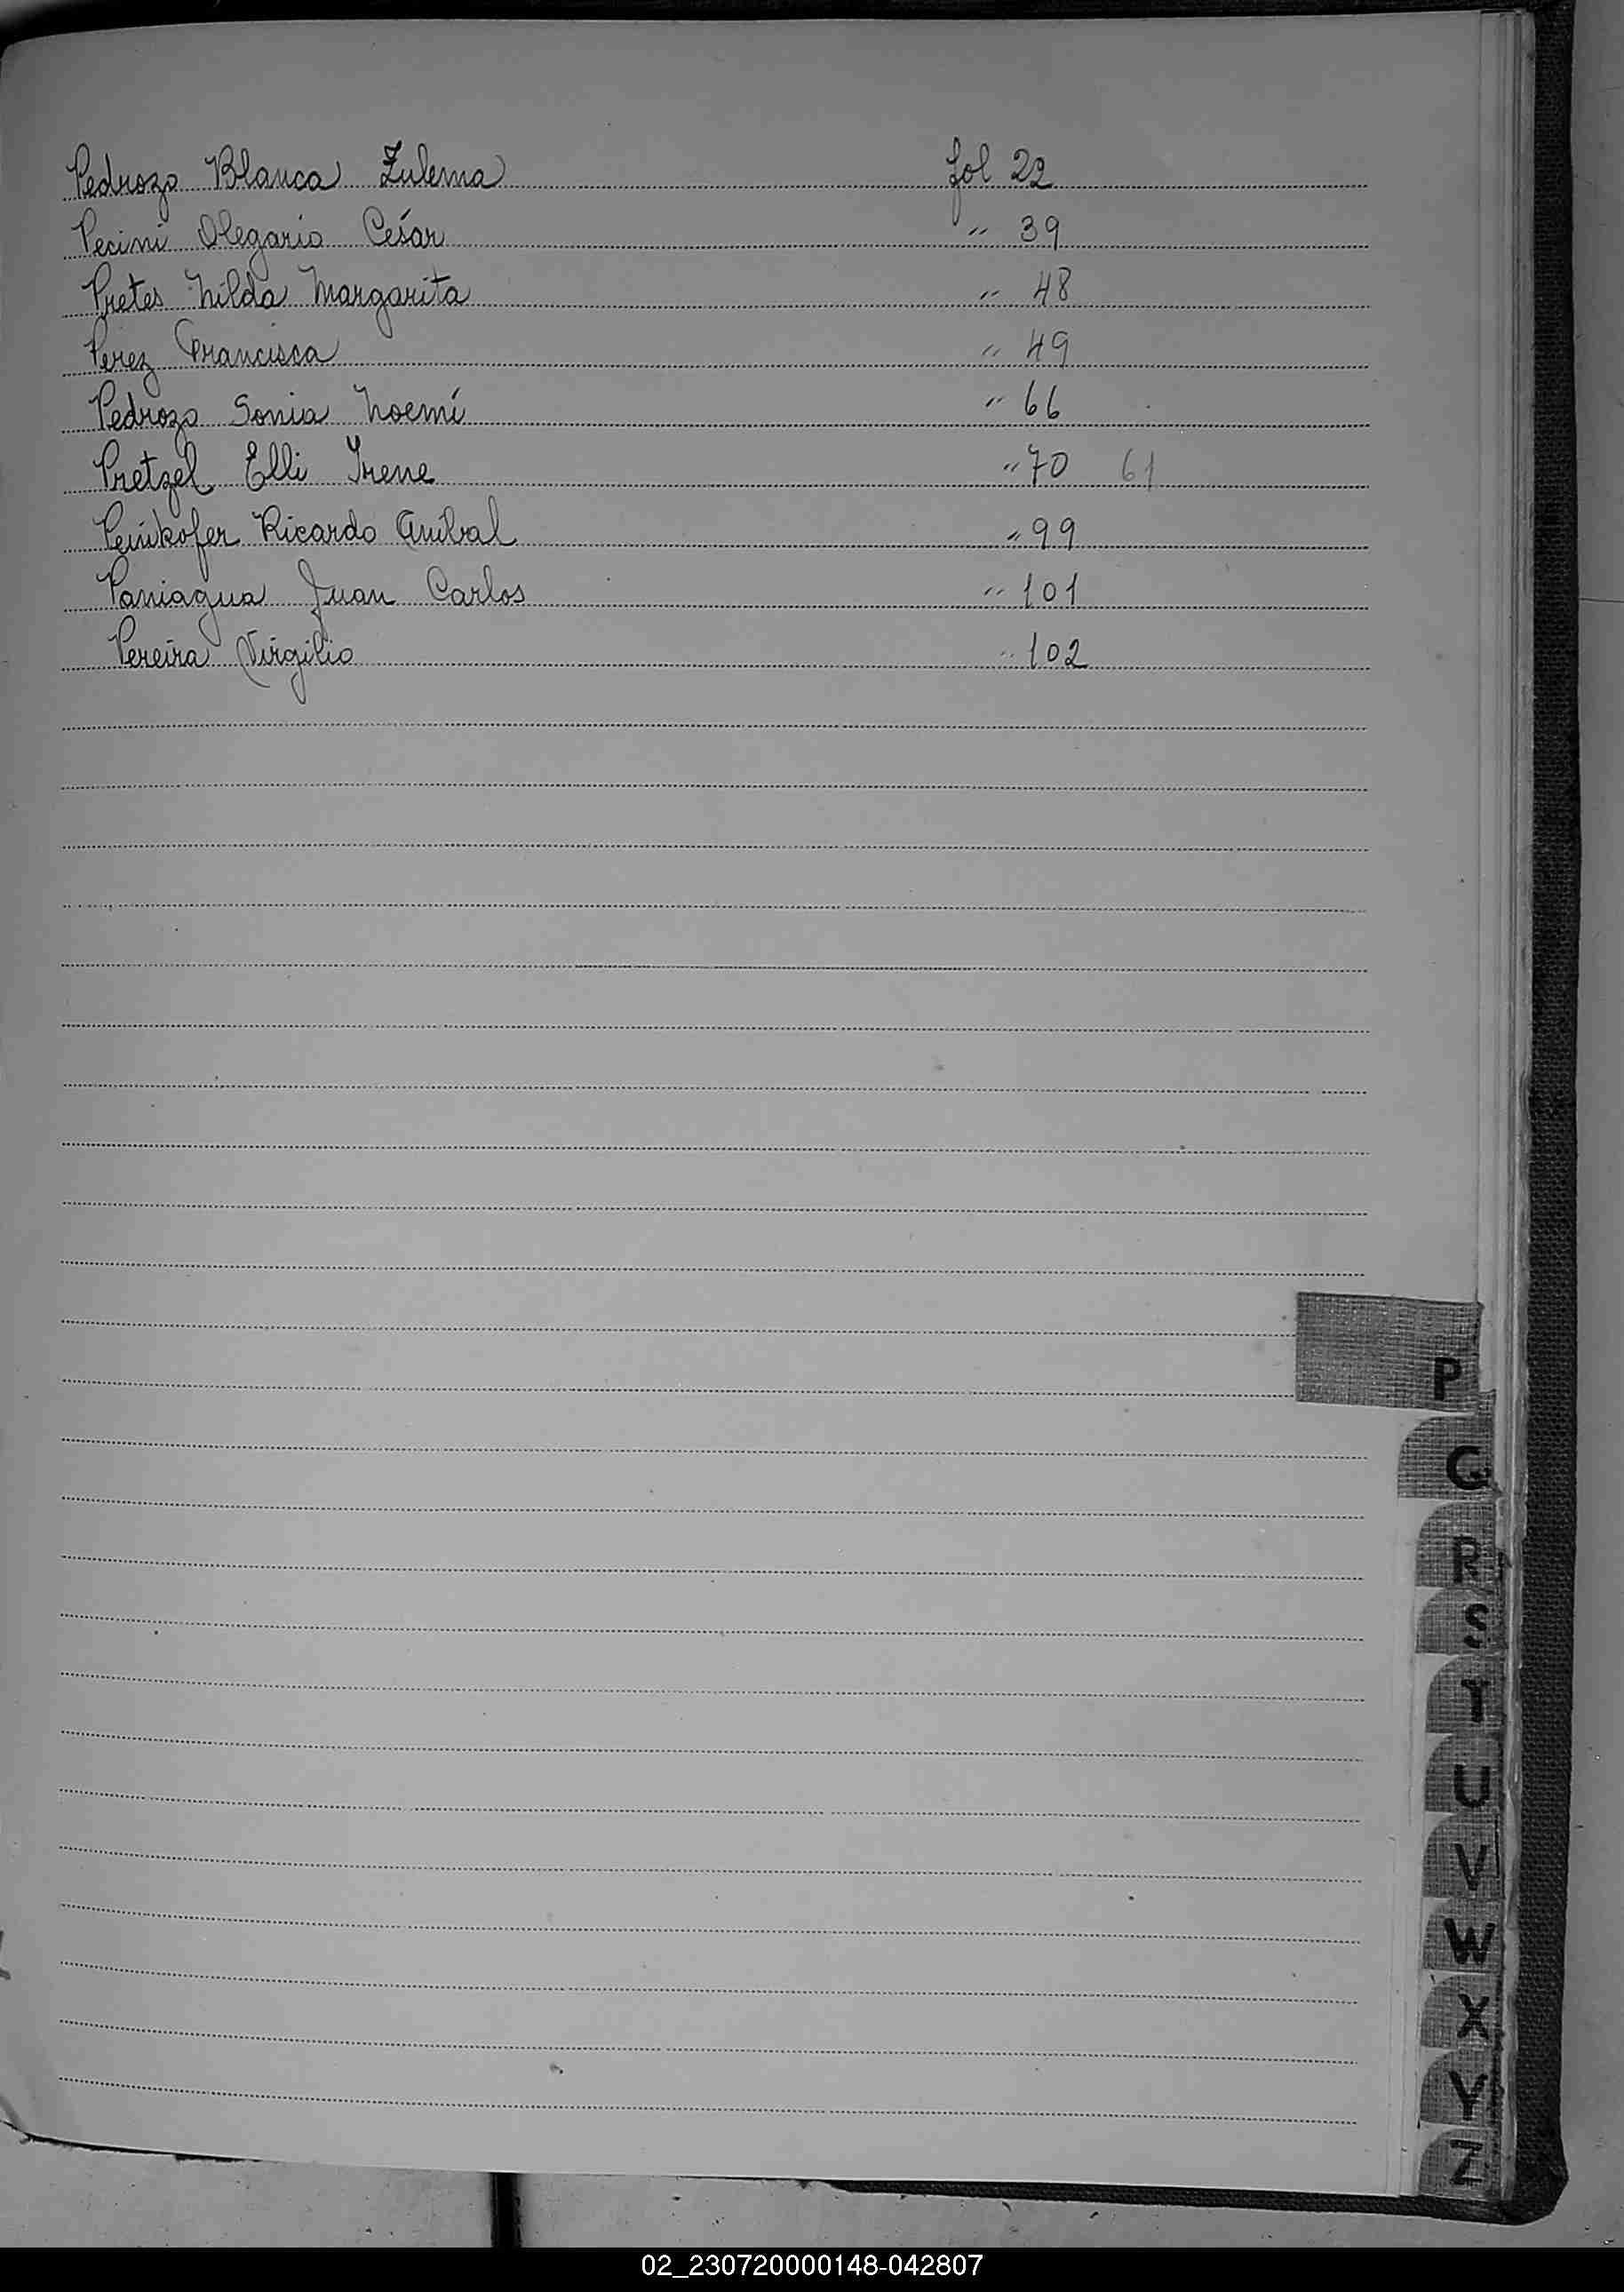 Pedrozo Blanca Zulema fol 22
Pecini Olegario César " 39
Pretes Nilda Margarita " 48
Perez Francisca " 49
Pedrozo Sonia Noemí " 66
Pretzel Elli Irene " 70 61
Ricardo Anibal " 99
Paniagua Juan Carlos " 101
Pereira Virgilio " 102
P
Q
R
S
T
U
V
W
X
Y
Z
02_230720000148-042807